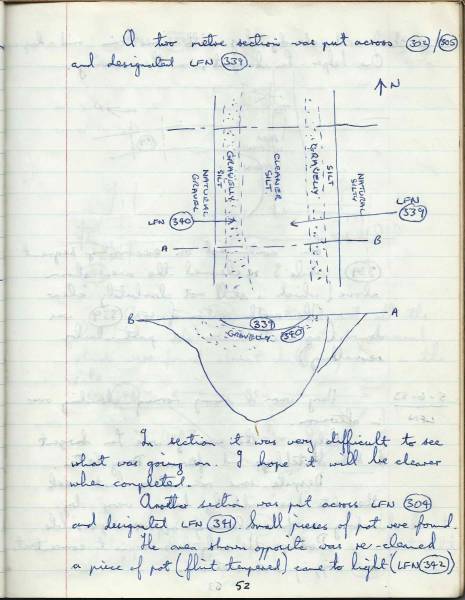 A two metre section was put across (302)/(305)
and designated LFN (339).
↑N
NATURAL GRAVEL
SILT
GRAVELLY
CLEANER SILT
GRAVELLY
SILT
NATURAL SILTY
LFN (340)
LFN (339)
A
B
B
A
(339)
GRAVELLY (340)
In section it was very difficult to see
what was going on. I hope it will be clearer
when completed.
Another section was put across LFN (304)
and designated LFN (341). Small pieces of pot were found.
The area shown opposite was re-cleaned
a piece of pot (flint tempered) came to light (LFN (342))
52